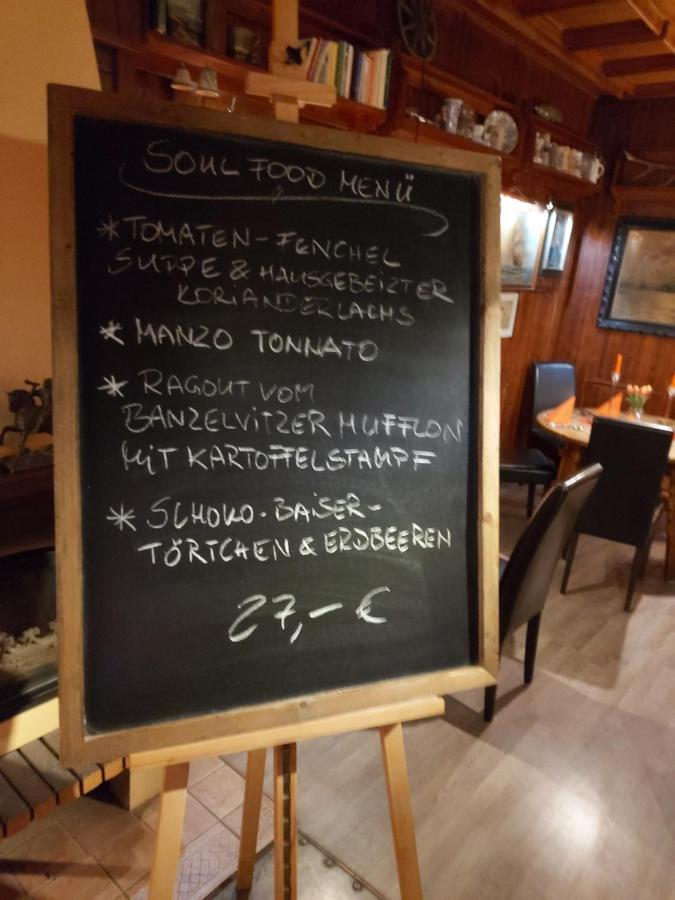 SOUL FOOD MENÜ
* TOMATEN-FENCHEL
SUPPE & HAUSGEBEIZTER
KORIANDERLACHS
* MANZO TONNATO
* RAGOUT VOM
BANZELVITZER MUFFLON
MIT KARTOFFELSTAMPF
* SCHOKO-BAISER-
TÖRTCHEN & ERDBEEREN
27,- €